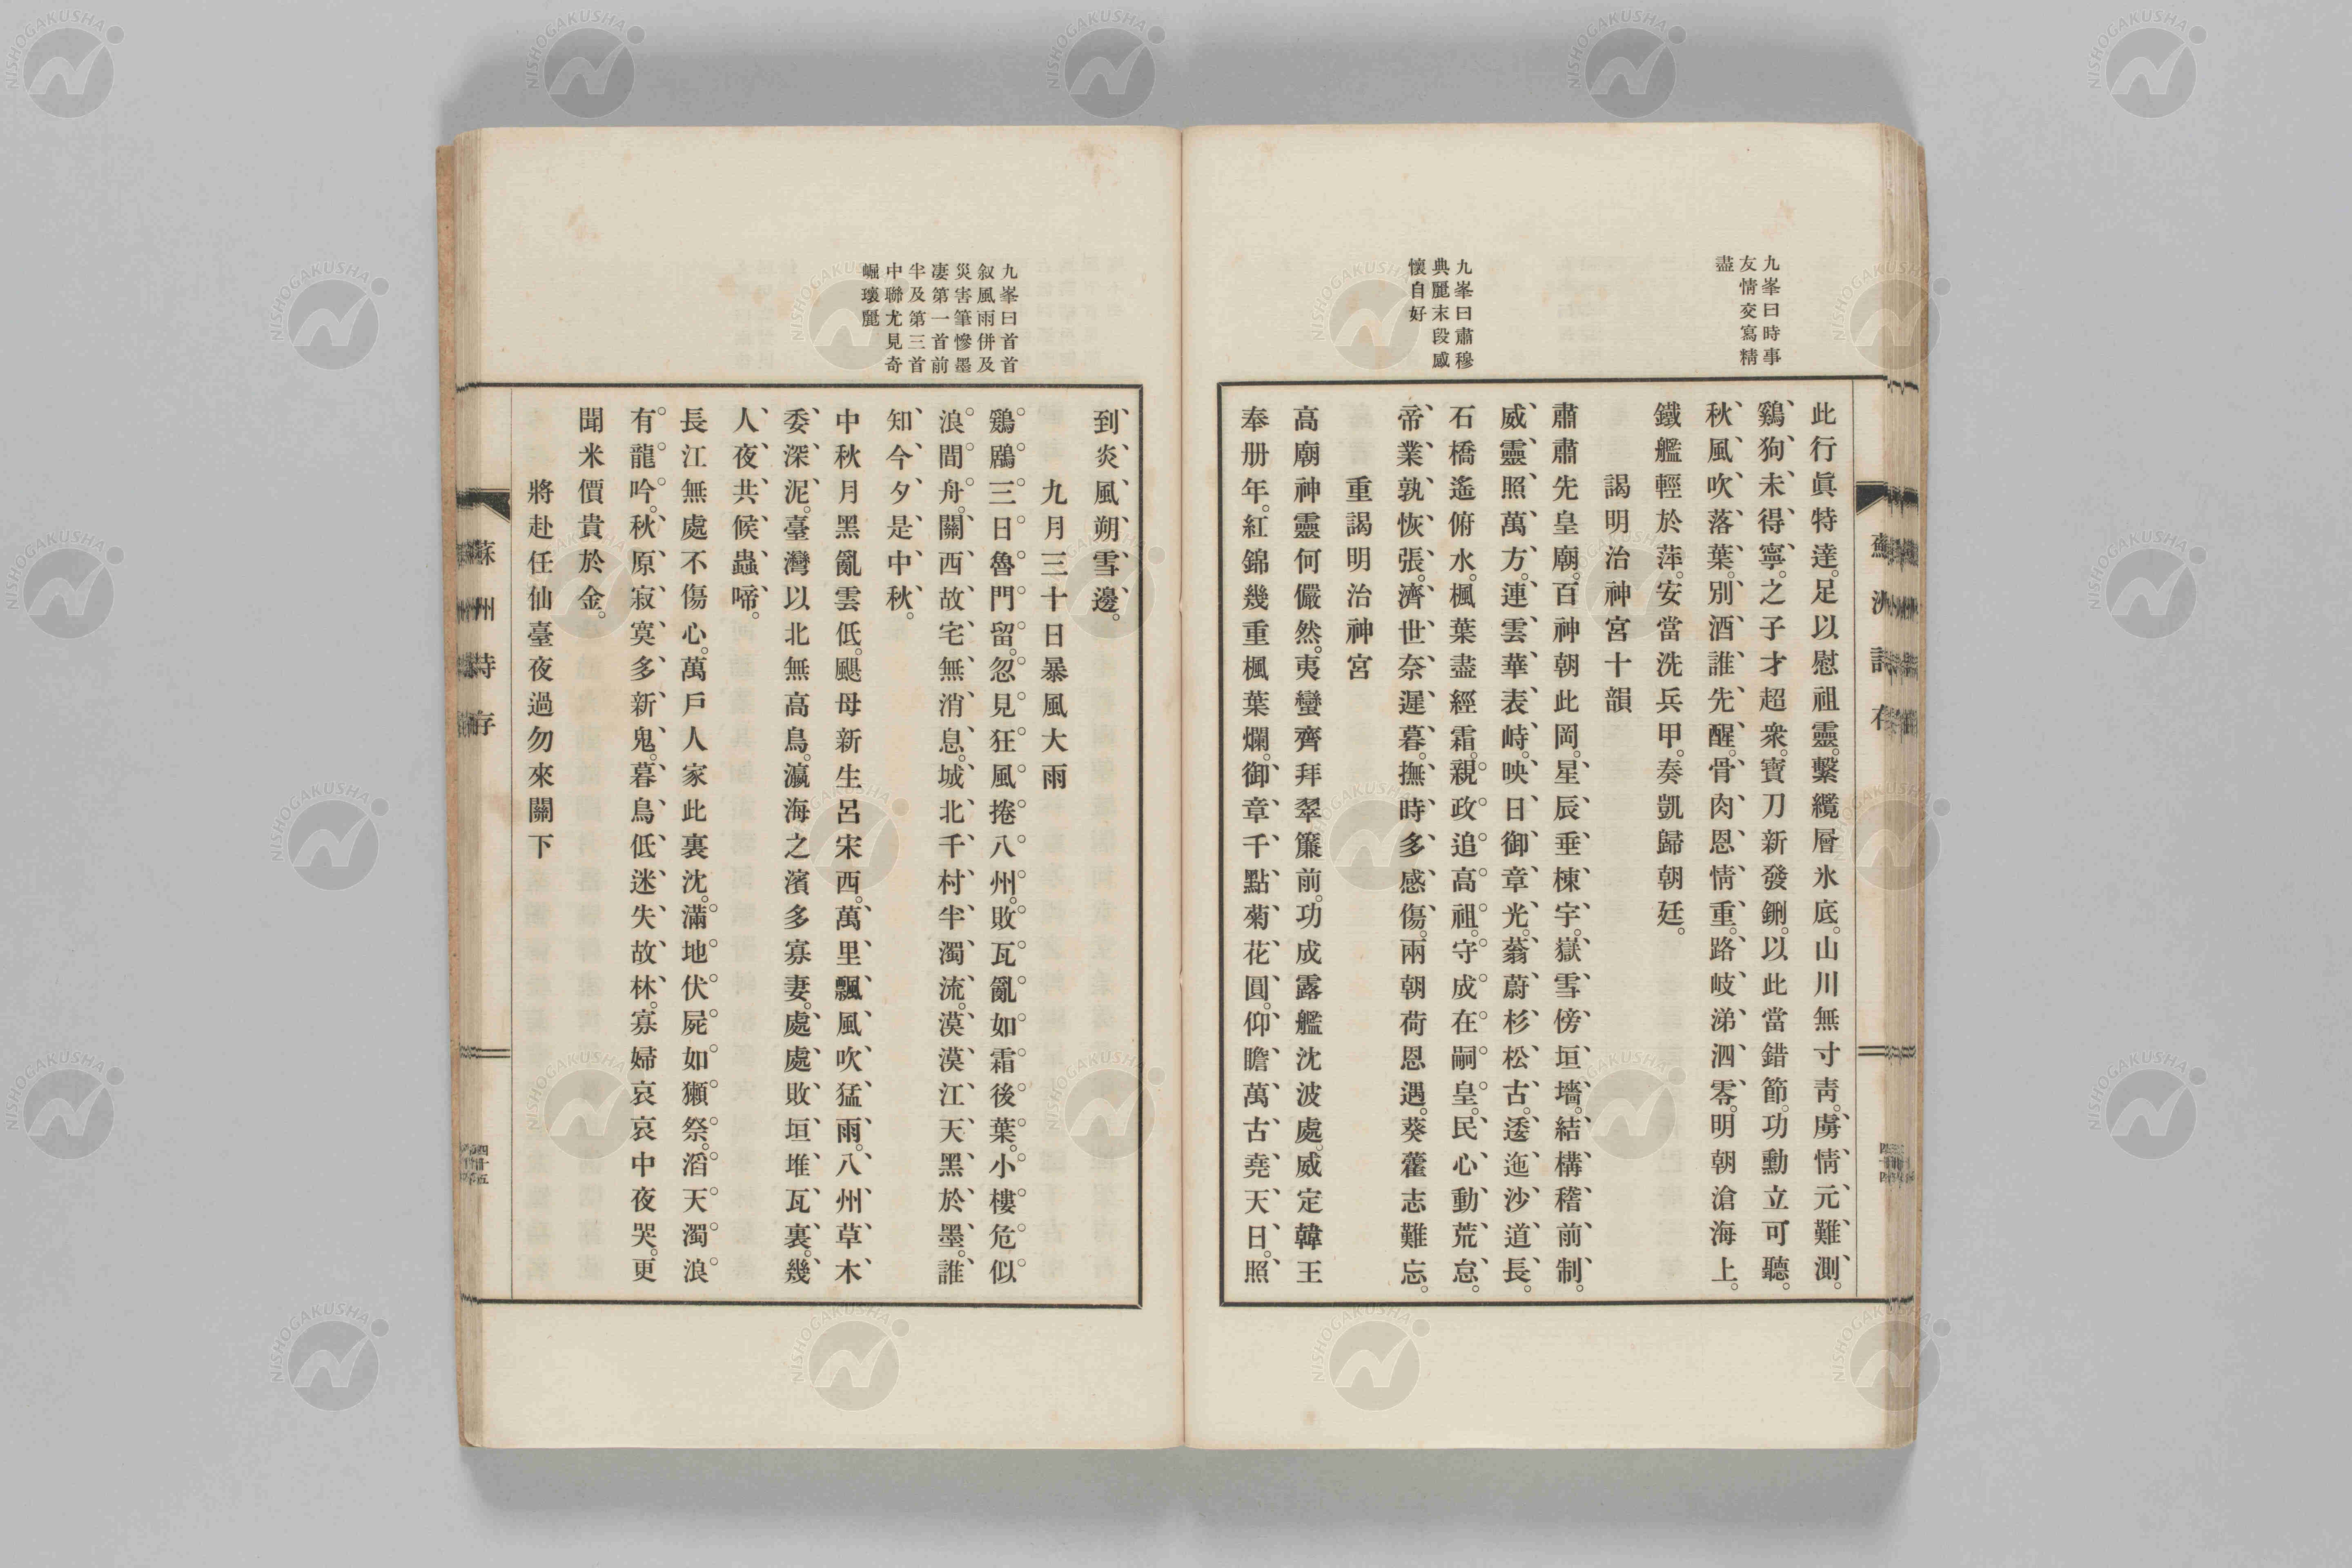 九峯曰時事
友情交寫精
盡
九峯曰肅穆
典麗末段感
懷自好
此行眞特達。足以慰祖靈。繫纜層氷底。山川無寸靑。虜情元難測。
鷄狗未得寧。之子才超衆。寶刀新發鉶。以此當錯節。功勳立可聽。
秋風吹落葉。別酒誰先醒。骨肉恩情重。路岐涕泗零。明朝滄海上。
鐵艦輕於萍。安當洗兵甲。奏凱歸朝廷。
謁明治神宮十韻
肅肅先皇廟。百神朝此岡。星辰垂棟宇。嶽雪傍垣墻。結構稽前制。
威靈照萬方。連雲華表峙。映日御章光。蓊蔚杉松古。逶迤沙道長。
石橋遙俯水。楓葉盡經霜。親政追高祖。守成在嗣皇。民心動荒怠。
帝業孰恢張。濟世奈遲暮。撫時多感傷。兩朝荷恩遇。葵藿志難忘。
重謁明治神宮
高廟神靈何儼然。夷蠻齊拜翠簾前。功成露艦沈波處。威定韓王
奉册年。紅錦幾重楓葉爛。御章千點菊花圓。仰瞻萬古堯天日。照
九峯曰首首
叙風雨併及
災害筆慘墨
凄第一首前
半及第三首
中聯尤見奇
崛瓌麗
到炎風朔雪邊。
九月三十日暴風大雨
鷄鶋三日魯門留。忽見狂風捲八州。敗瓦亂如霜後葉。小樓危似
浪間舟。關西故宅無消息。城北千村半濁流。漠漠江天黑於墨。誰
知今夕是中秋。
中秋月黑亂雲低。颶母新生呂宋西。萬里飄風吹猛雨。八州草木
委深泥。臺灣以北無高鳥。瀛海之濱多寡妻。處處敗垣堆瓦裏。幾
人夜共候蟲啼。
長江無處不傷心。萬戶人家此裏沈。滿地伏屍如獺祭。滔天濁浪
有龍吟。秋原寂寞多新鬼。暮鳥低迷失故林。寡婦哀哀中夜哭。更
聞米價貴於金。
將赴任仙臺夜過勿來關下